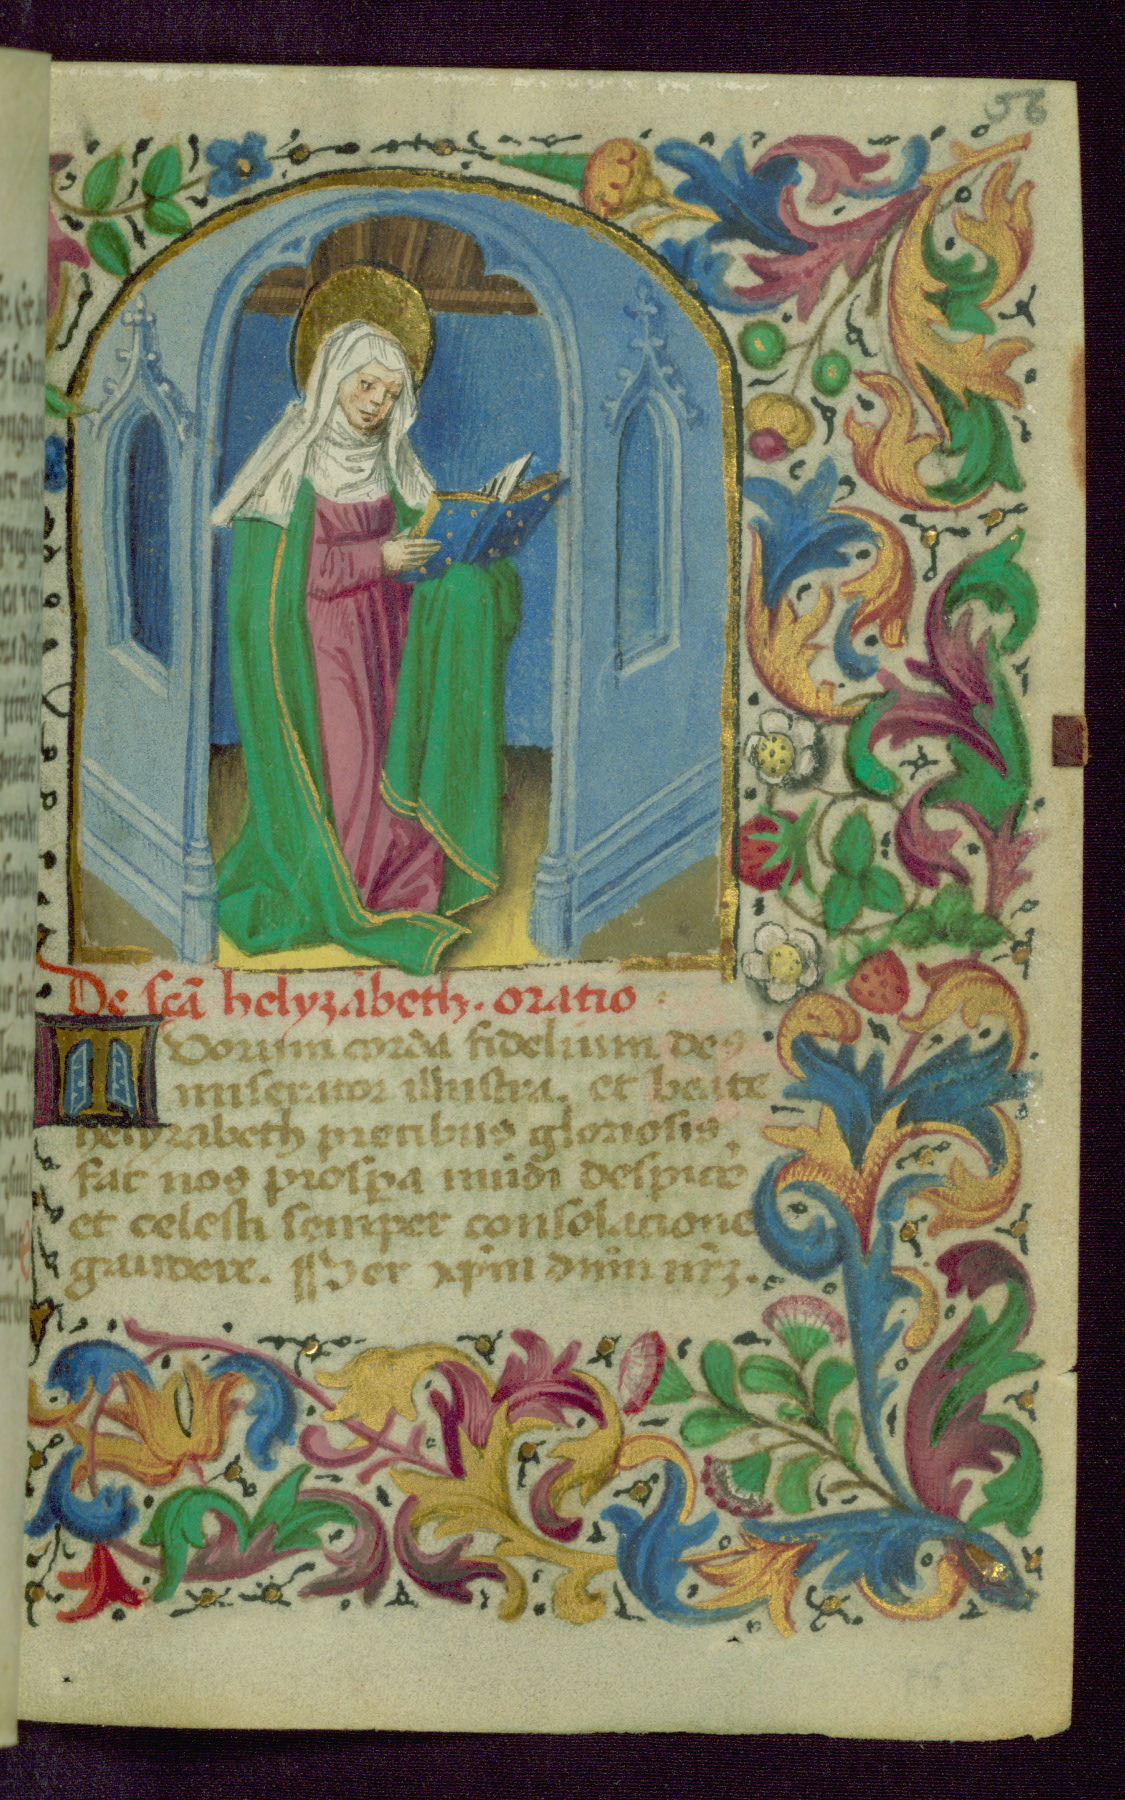 56
De sc̄a helyzabeth. oratio
Tuorum corda fidelium deus
miserator illustra. et beate
helyzabeth precibus gloriosis.
fac nos prosp̄a mūdi despicē
et celesti semper consolatione
gaudere. Per xp̄m dn̄m nr̄z.